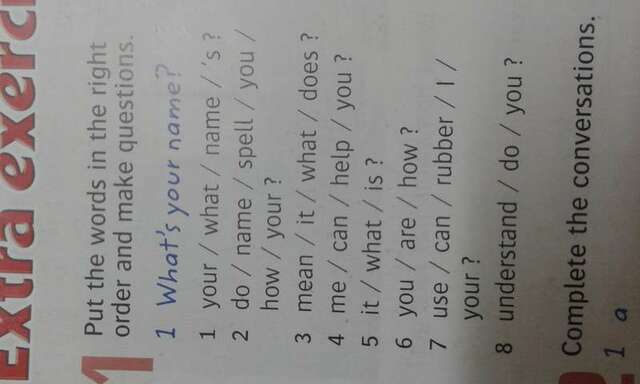 Extra exerci
1 Put the words in the right
order and make questions.
1 What's your name?
1 your / what / name / 's ?
2 do / name / spell / you /
how / your ?
3 mean / it / what / does ?
4 me / can / help / you ?
5 it / what / is ?
6 you / are / how ?
7 use / can / rubber / I /
your ?
8 understand / do / you ?
Complete the conversations.
1 a